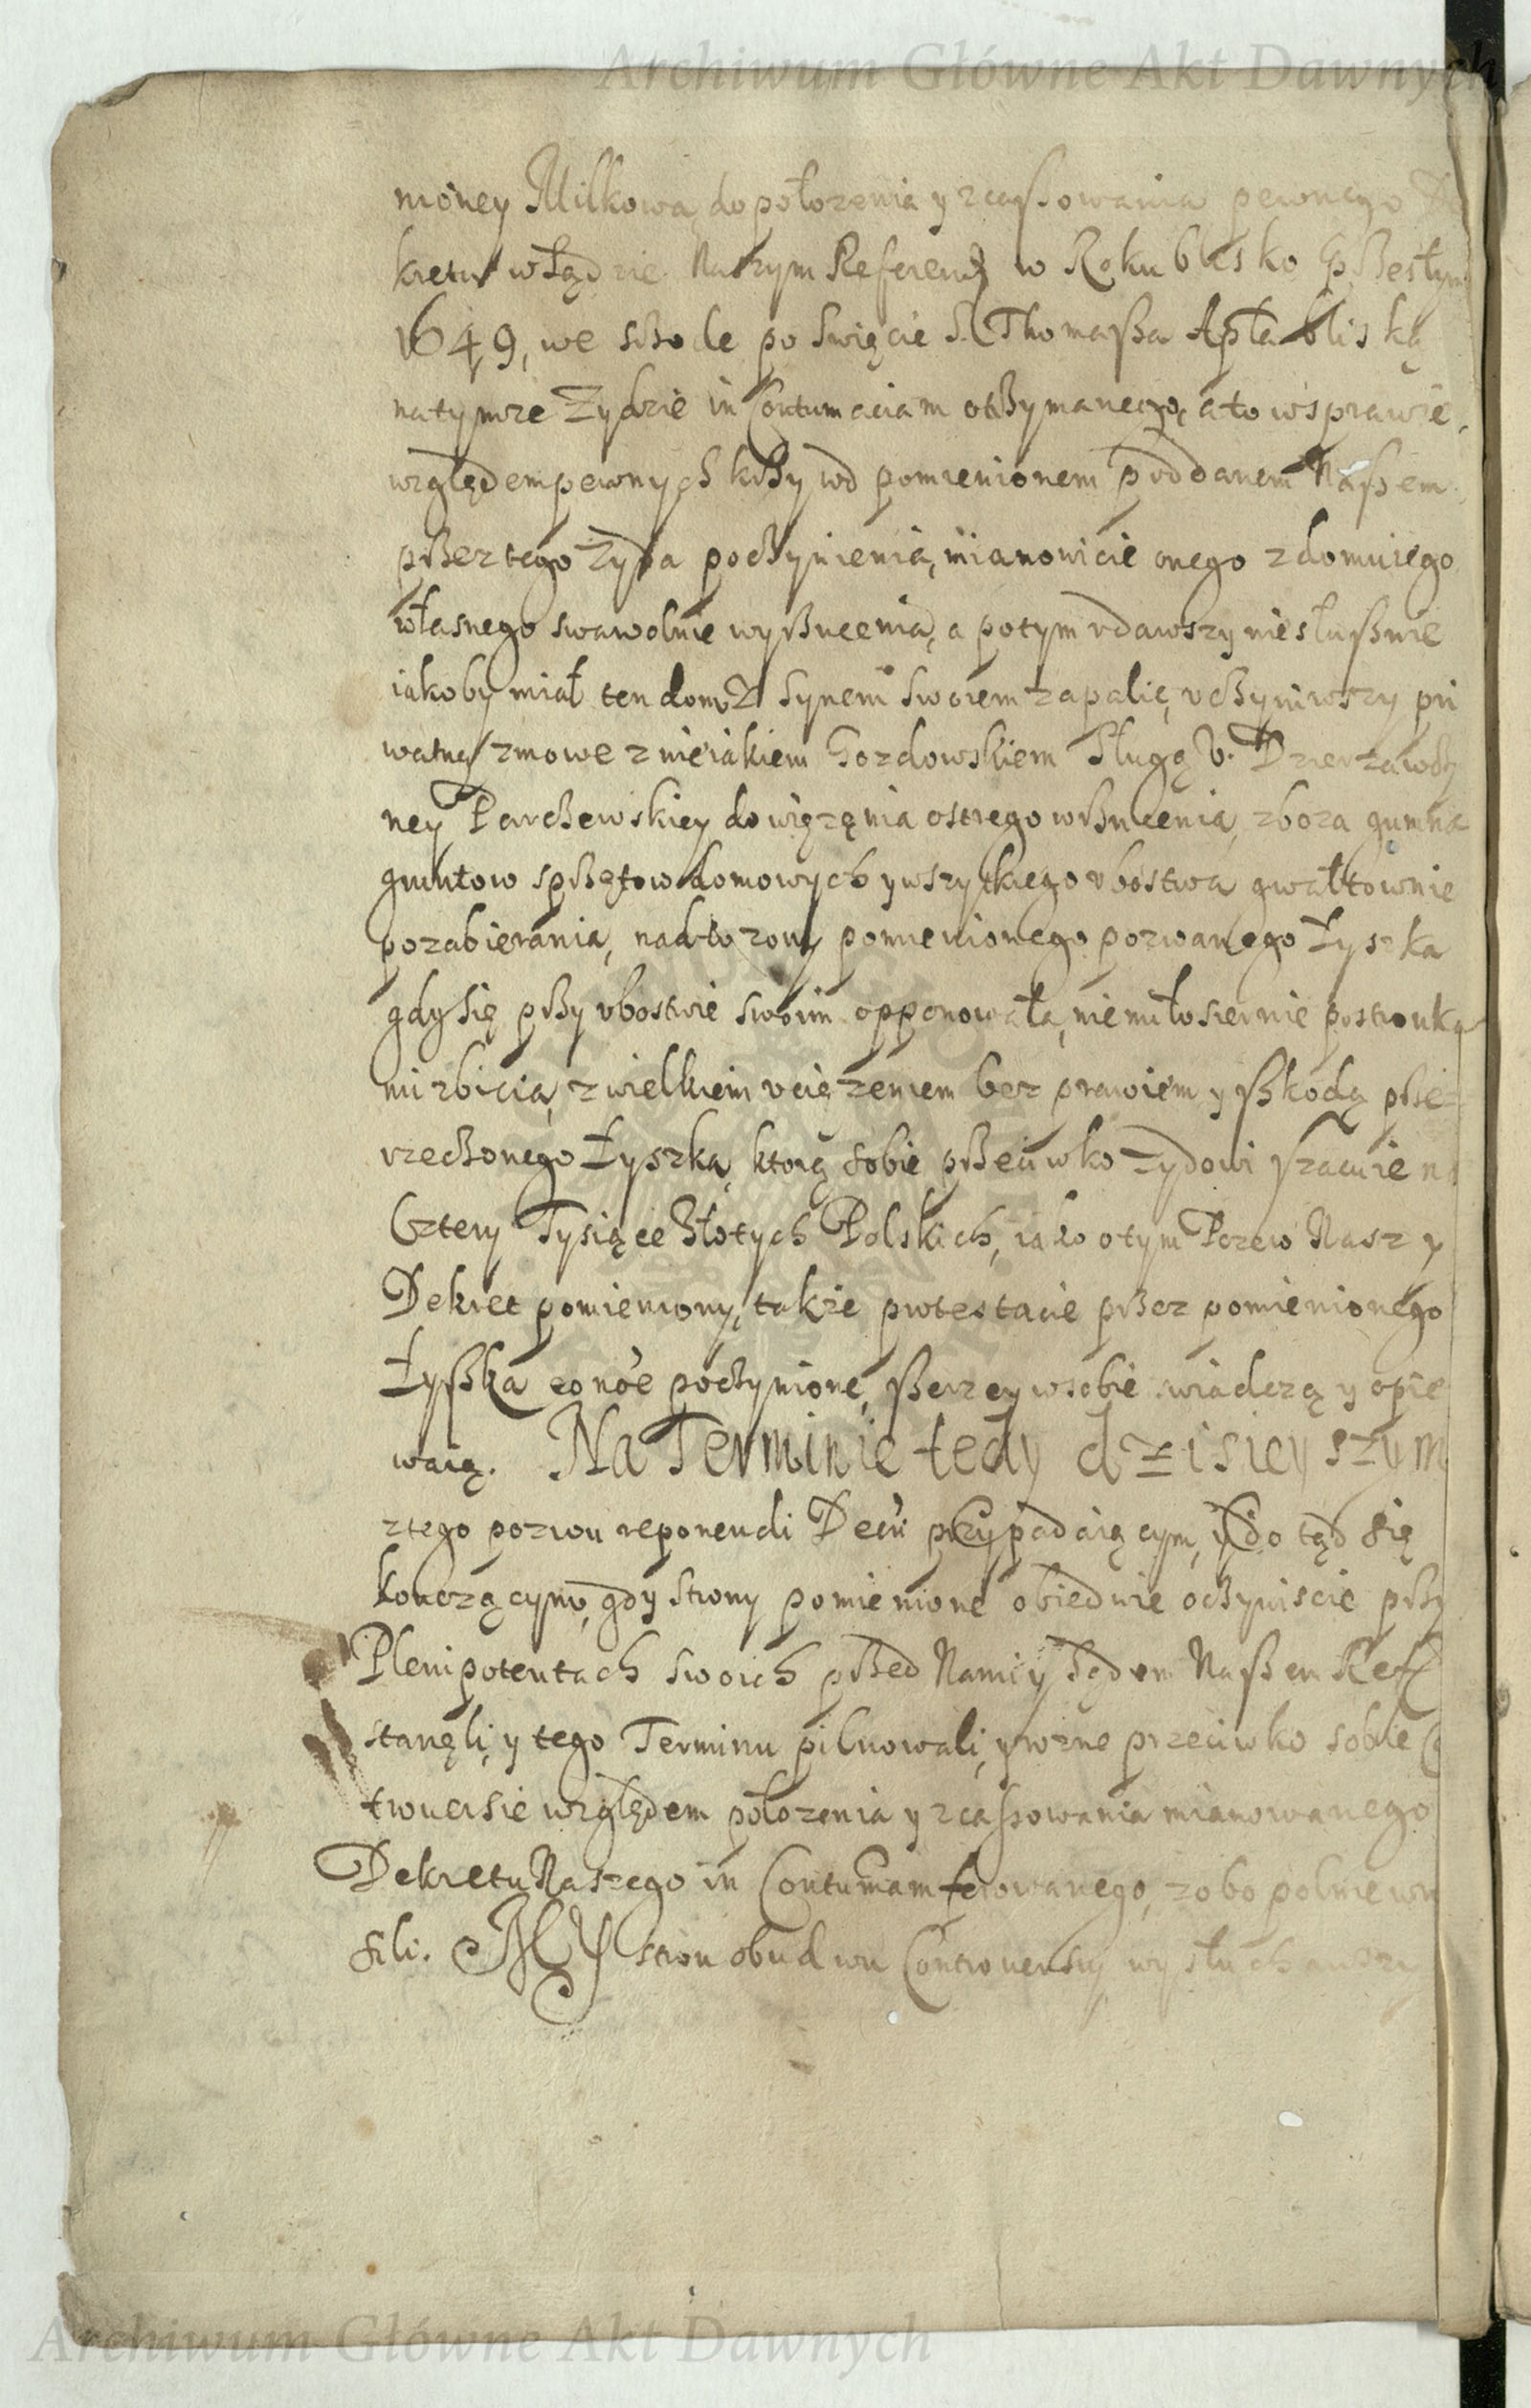 Archiwum Główne Akt Dawnych
mioney Milkową do położenia y zcassowania pewnego De
kretu w Sądzie Naszym Referen w Roku blisko przeszłym
1649, we środe po Swięcie S. Thomasza Apła bliską
na tymże Zydzie in Contumaciam otrzymanego, a to w sprawie,
względem pewnych krzywd pomienionem poddanem Naszem
przez tego Zyda poczynienia, mianowicie onego z domu iego
własnego swawolnie wyrzucenia, a potym udawszy niesłusznie
iakoby miał ten dom z Synem Swoiem zapalić, uczyniwszy pri
watną zmowe z nieiakiem Gozdowskiem Sługą U. Dzierzawcy
ney Parczewskiey do więzęnia ostrego wrzucenia, zboza gumna
gruntow sprzętow domowych y wszytkiego ubostwa gwałtownie
pozabierania, nadto zony pomienionego pozwanego Łyszka
gdy się przy ubostwie swoim opponowała, niemiłosiernie postronka
mi zbicia, z wielkiem uciązeniem bezprawiem y szkodą prze
rzeczonego Łyszka, ktorą sobie przeciwko Zydowi szacuie na
Cztery Tysiące Złotych Polskich, iako o tym Pozew Nasz y
Dekret pomieniony, takze protestacie przez pomienionego
Łyszka poczynione, szerzey w sobie swiadczą y opie
waią. Na Terminie tedy dzisieyszym
z tego pozwu reponendi Decti przypadaiącym, y do tąd się
konczącym, gdy Strony pomienione obiedwie oczywiscie przy
Plenipotentach swoich przed Nami y Sądem Naszem Reff
stanęli, y tego Terminu pilnowali, y wzne przeciwko sobie Co
trouersie względem położenia y zcassowania mianowanego
Dekretu Naszego in Contumam ferowanego, z obopolnie wn
sili. MY stron obudwu Controuersiy wysłuchawszy
Archiwum Główne Akt Dawnych